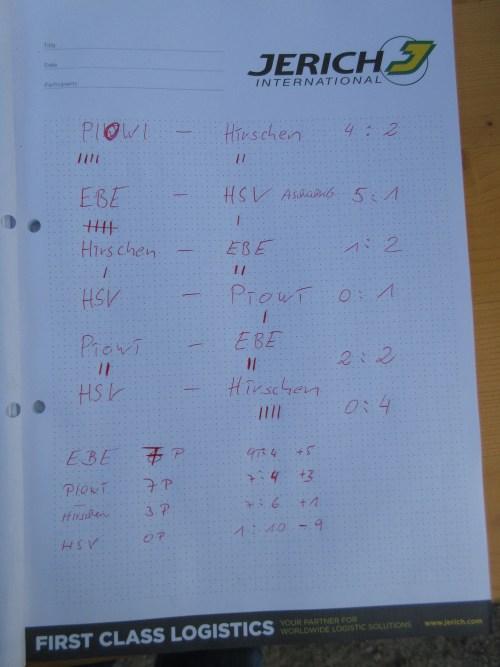 Title
Date
Participants
JERICH
INTERNATIONAL
PIOWI — Hirschen 4:2
EBE — HSV 5:1
Hirschen — EBE 1:2
HSV — Piowi 0:1
Piowi — EBE 2:2
HSV — Hirschen 0:4
EBE 7 P :4 +5
PIOWI 7 P 7:4 +3
Hirschen 3 P 7:6 +1
HSV 0 P 1:10 -9
FIRST CLASS LOGISTICS YOUR PARTNER FOR WORLDWIDE LOGISTIC SOLUTIONS www.jerich.com